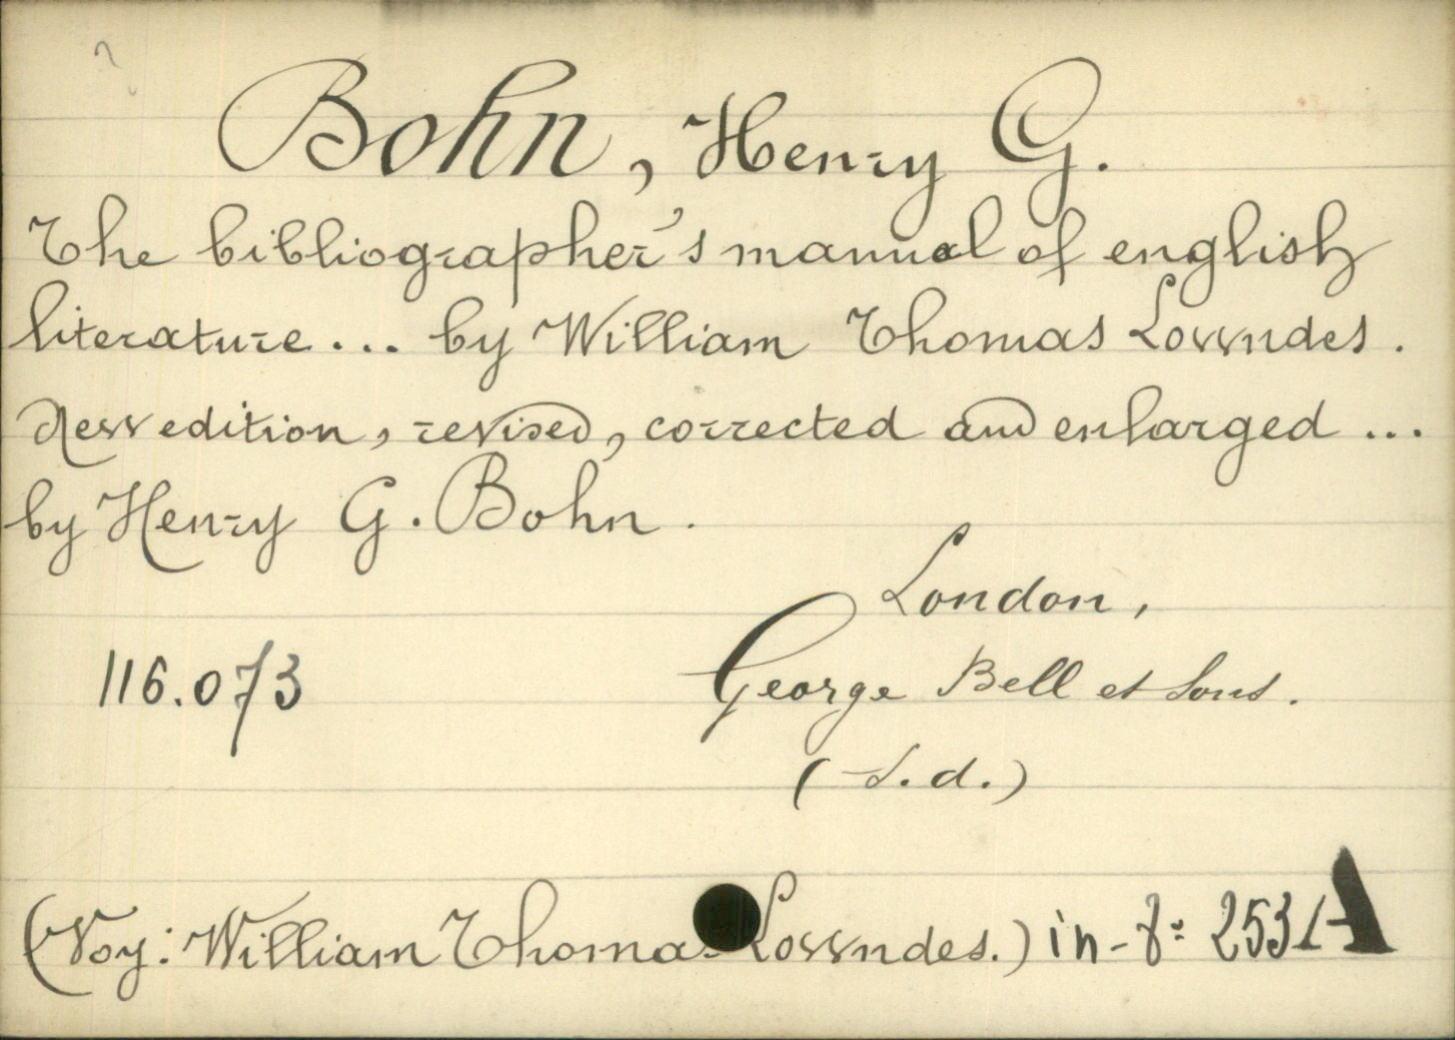 Bohn, Henry G.
The bibliographer's manual of english
literature... by William Thomas Lowndes.
New edition, revised, corrected and enlarged...
by Henry G. Bohn.
London,
116.073
George Bell et Sons.
(S.d.)
(Voy: William Thomas Lowndes.) in-8º 2531 A